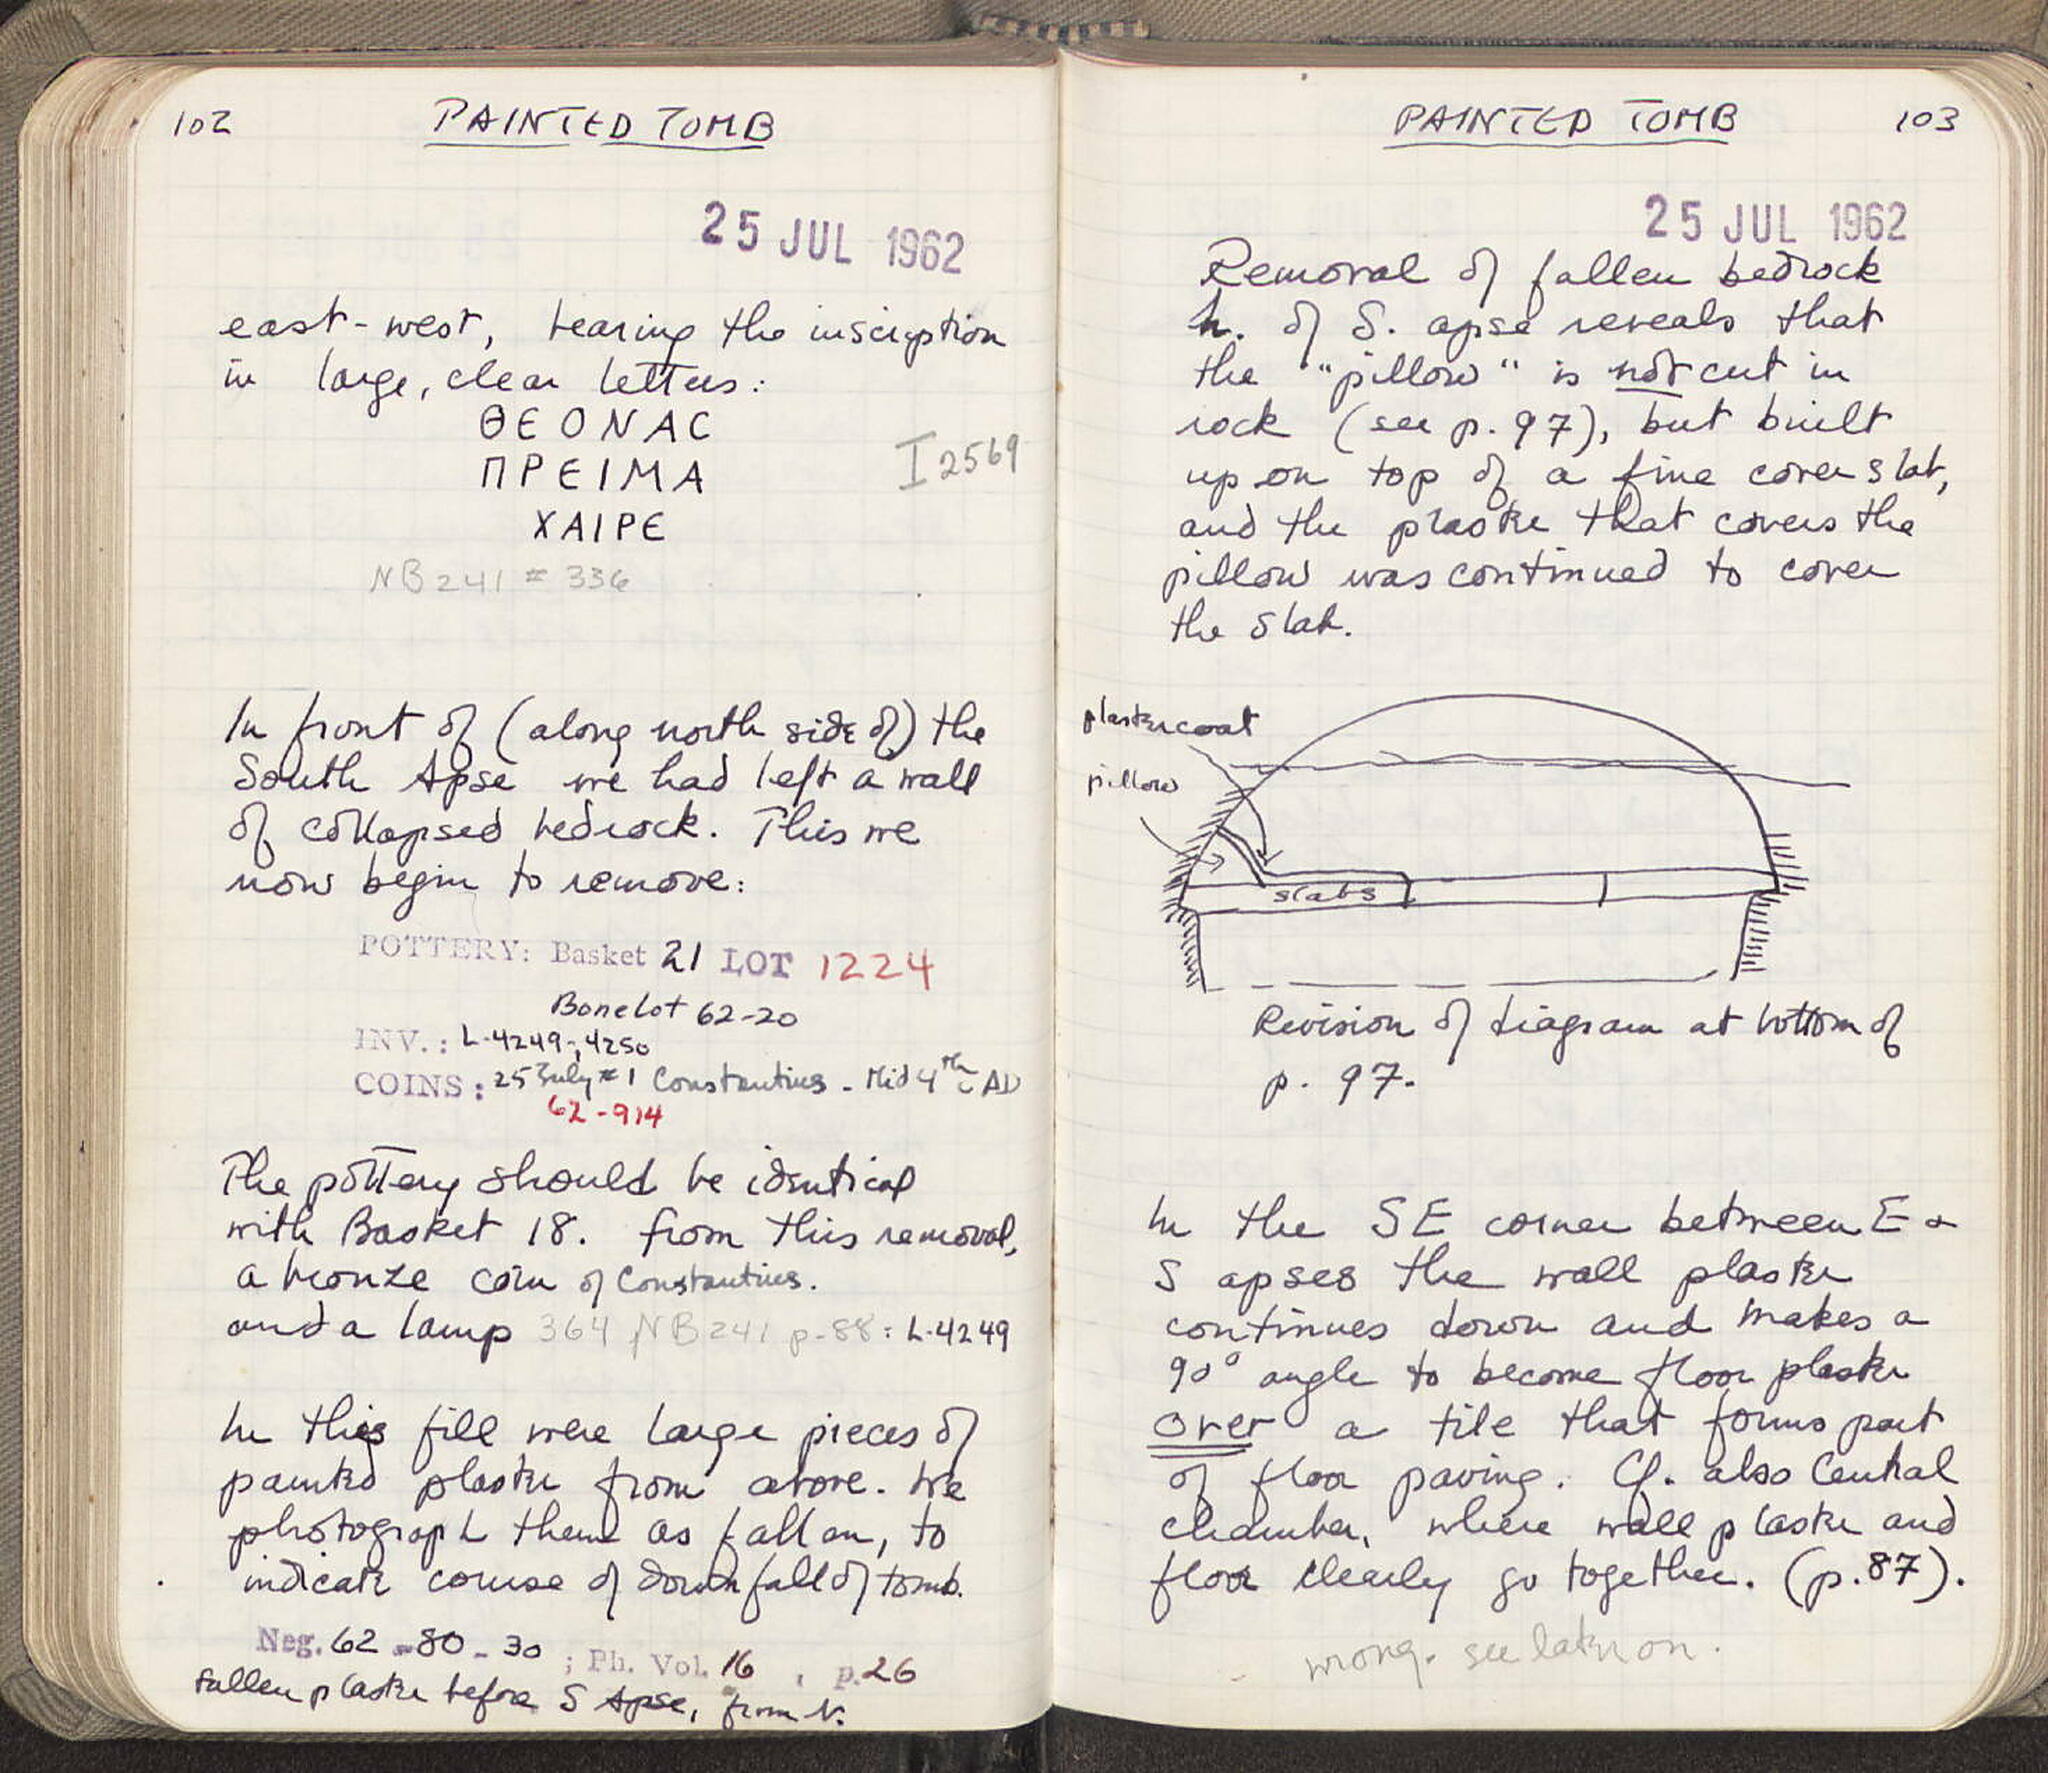 102 PAINTED TOMB
25 JUL 1962
east-west, bearing the inscription
in large, clear letters:
ΘΕΟΝΑC
ΠΡΕΙΜΑ
ΧΑΙΡΕ
I 2569
NB 241 # 336
In front of (along north side of) the
South Apse we had left a wall
of collapsed bedrock. This we
now begin to remove:
POTTERY: Basket 21 LOT 1224
Bone Lot 62-20
INV.: L-4249-, 4250
COINS: 25 July #1 Constantius - Mid 4th c AD
62-914
The pottery should be identical
with Basket 18. From this removal,
a bronze coin of Constantius.
and a lamp 364 NB 241 p-88: L-4249
In this fill were large pieces of
painted plaster from above. We
photograph them as fallen, to
indicate course of downfall of tomb.
Neg. 62-80-30 ; Ph. Vol. 16 , p. 26
Fallen plaster before S Apse, from N.
PAINTED TOMB 103
25 JUL 1962
Removal of fallen bedrock
N. of S. apse reveals that
the "pillow" is not cut in
rock (see p. 97), but built
up on top of a fine cover slab,
and the plaster that covers the
pillow was continued to cover
the slab.
plaster coat
pillow
slabs
Revision of diagram at bottom of
p. 97.
In the SE corner between E &
S apses the wall plaster
continues down and makes a
90° angle to become floor plaster
over a tile that forms part
of floor paving. Cf. also Central
chamber, where wall plaster and
floor clearly go together. (p. 87).
wrong. see later on.